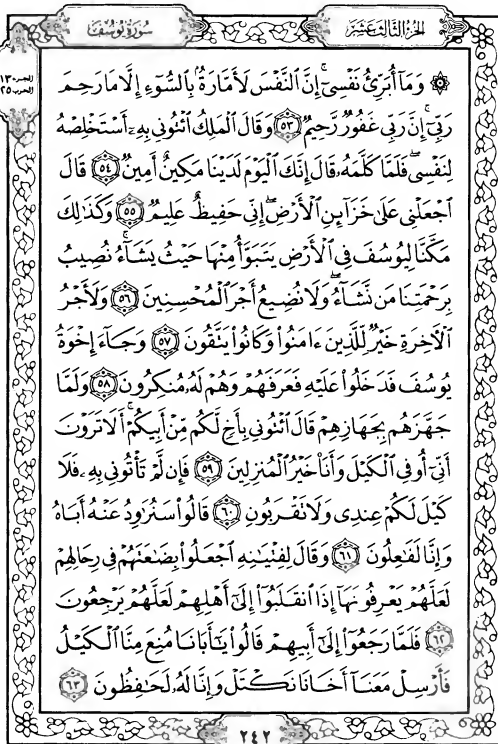 الجزء الثالث عشر
سورة يوسف
الجزء ١٣
الحزب ٢٥
۞ وَمَآ أُبَرِّئُ نَفْسِىٓۚ إِنَّ ٱلنَّفْسَ لَأَمَّارَةُۢ بِٱلسُّوٓءِ إِلَّا مَا رَحِمَ
رَبِّىٓۚ إِنَّ رَبِّى غَفُورٌ رَّحِيمٌ ٥٣ وَقَالَ ٱلْمَلِكُ ٱئْتُونِى بِهِۦٓ أَسْتَخْلِصْهُ
لِنَفْسِىۖ فَلَمَّا كَلَّمَهُۥ قَالَ إِنَّكَ ٱلْيَوْمَ لَدَيْنَا مَكِينٌ أَمِينٌ ٥٤ قَالَ
ٱجْعَلْنِى عَلَىٰ خَزَآئِنِ ٱلْأَرْضِۖ إِنِّى حَفِيظٌ عَلِيمٌ ٥٥ وَكَذَٰلِكَ
مَكَّنَّا لِيُوسُفَ فِى ٱلْأَرْضِ يَتَبَوَّأُ مِنْهَا حَيْثُ يَشَآءُۚ نُصِيبُ
بِرَحْمَتِنَا مَن نَّشَآءُۖ وَلَا نُضِيعُ أَجْرَ ٱلْمُحْسِنِينَ ٥٦ وَلَأَجْرُ
ٱلْأَخِرَةِ خَيْرٌ لِّلَّذِينَ ءَامَنُوا۟ وَكَانُوا۟ يَتَّقُونَ ٥٧ وَجَآءَ إِخْوَةُ
يُوسُفَ فَدَخَلُوا۟ عَلَيْهِ فَعَرَفَهُمْ وَهُمْ لَهُۥ مُنكِرُونَ ٥٨ وَلَمَّا
جَهَّزَهُم بِجَهَازِهِمْ قَالَ ٱئْتُونِى بِأَخٍ لَّكُم مِّنْ أَبِيكُمْۚ أَلَا تَرَوْنَ
أَنِّىٓ أُوفِى ٱلْكَيْلَ وَأَنَا۠ خَيْرُ ٱلْمُنزِلِينَ ٥٩ فَإِن لَّمْ تَأْتُونِى بِهِۦ فَلَا
كَيْلَ لَكُمْ عِندِى وَلَا تَقْرَبُونِ ٦٠ قَالُوا۟ سَنُرَٰوِدُ عَنْهُ أَبَاهُ
وَإِنَّا لَفَٰعِلُونَ ٦١ وَقَالَ لِفِتْيَٰنِهِ ٱجْعَلُوا۟ بِضَٰعَتَهُمْ فِى رِحَالِهِمْ
لَعَلَّهُمْ يَعْرِفُونَهَآ إِذَا ٱنقَلَبُوٓا۟ إِلَىٰٓ أَهْلِهِمْ لَعَلَّهُمْ يَرْجِعُونَ
٦٢ فَلَمَّا رَجَعُوٓا۟ إِلَىٰٓ أَبِيهِمْ قَالُوا۟ يَٰٓأَبَانَا مُنِعَ مِنَّا ٱلْكَيْلُ
فَأَرْسِلْ مَعَنَآ أَخَانَا نَكْتَلْ وَإِنَّا لَهُۥ لَحَٰفِظُونَ ٦٣
٢٤٢